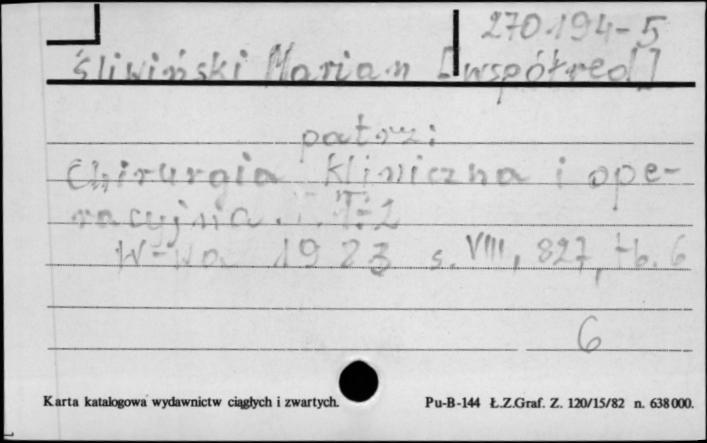 270.194-5
Śliwiński Marian [współred]
patrz:
Chirurgia kliniczna i ope-
racyjna. T. 1
W-wa 1923 s. VIII, 827, tb. 6
6
Karta katalogowa wydawnictw ciągłych i zwartych.
Pu-B-144 Ł.Z.Graf. Z. 120/15/82 n. 638000.